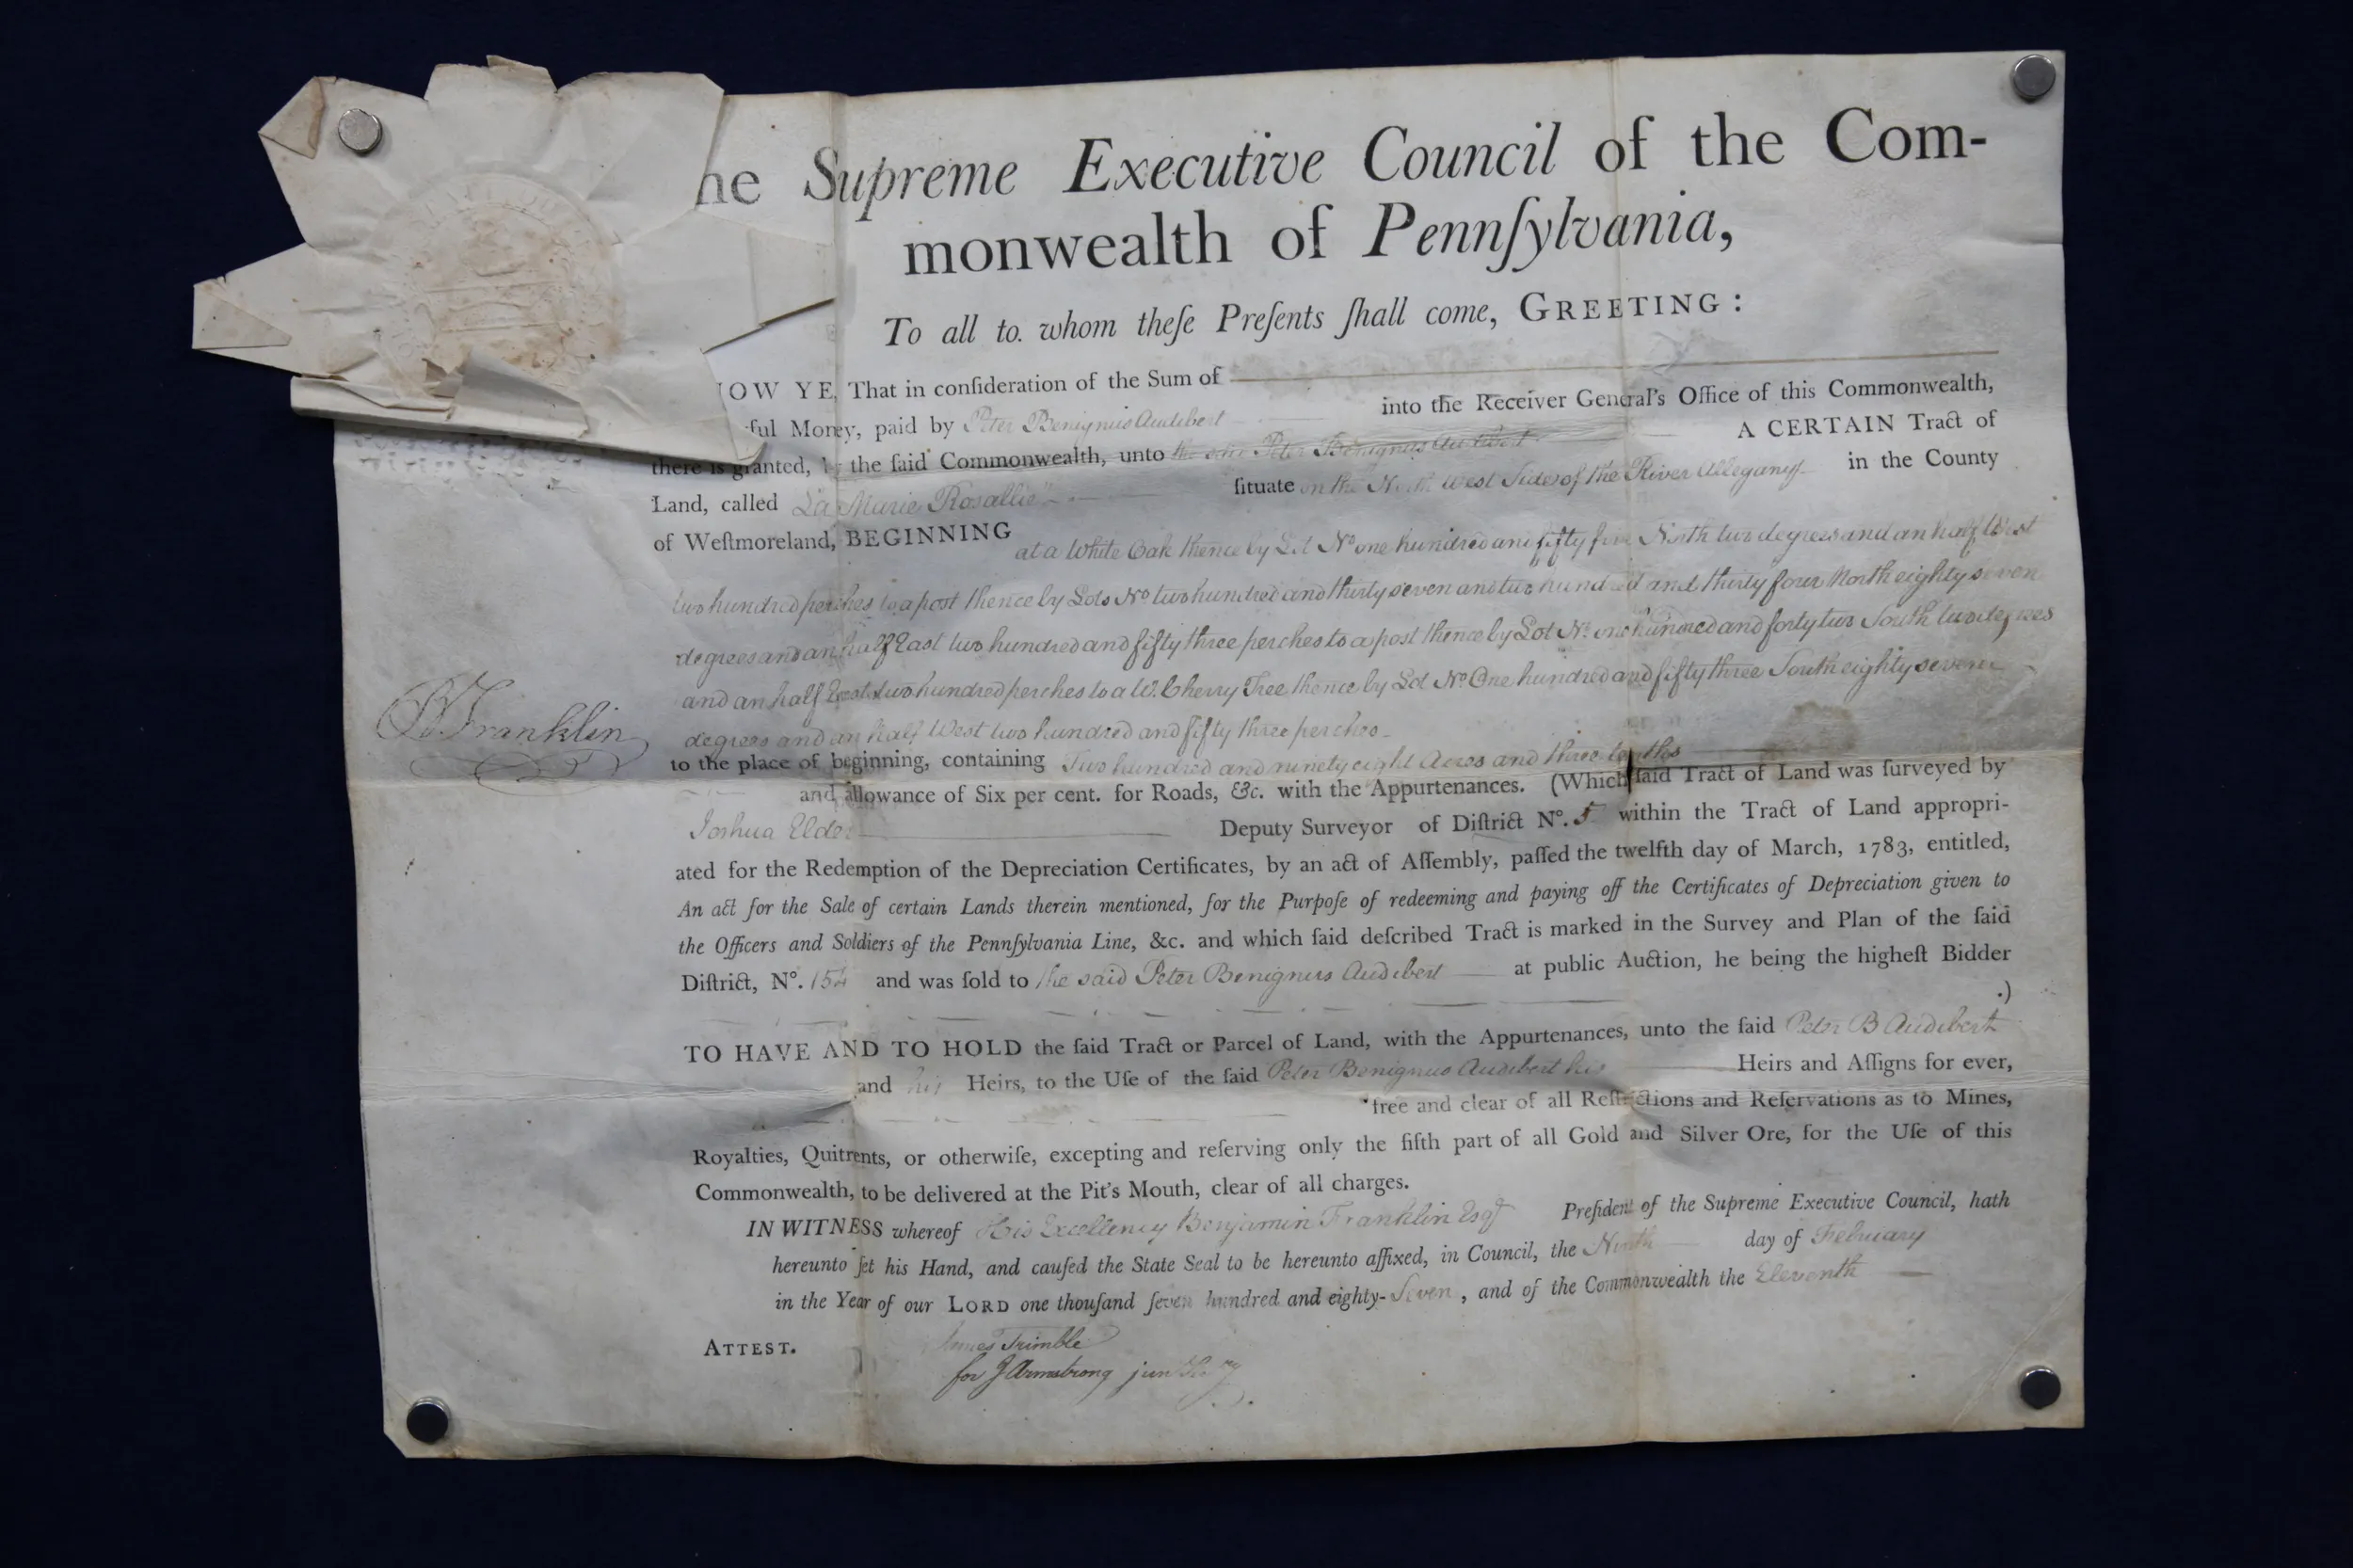 he Supreme Executive Council of the Com-
monwealth of Pennſylvania,
To all to. whom theſe Preſents ſhall come, GREETING:
OW YE, That in conſideration of the Sum of
ful Money, paid by Peter Benignus Audibert into the Receiver General's Office of this Commonwealth,
there is granted, by the ſaid Commonwealth, unto the said Peter Benignus Audibert A CERTAIN Tract of
Land, called "La Marie Rosallie" ſituate on the North West Side of the River Allegany in the County
of Weſtmoreland, BEGINNING at a White Oak thence by Lot No one hundred and fifty five North two degrees and an half West
two hundred perches to a post thence by Lots No two hundred and thirty seven and two hundred and thirty four North eighty seven
degrees and an half East two hundred and fifty three perches to a post thence by Lot No. one hundred and forty two South two degrees
and an half East two hundred perches to a W. Cherry Tree thence by Lot No. One hundred and fifty three South eighty seven
degrees and an half West two hundred and fifty three perches
to the place of beginning, containing Two hundred and ninety eight Acres and three tenths
and allowance of Six per cent. for Roads, &c. with the Appurtenances. (Which ſaid Tract of Land was ſurveyed by
Joshua Elder Deputy Surveyor of Diſtrict No. 5 within the Tract of Land appropri-
ated for the Redemption of the Depreciation Certificates, by an act of Aſſembly, paſſed the twelfth day of March, 1783, entitled,
An act for the Sale of certain Lands therein mentioned, for the Purpoſe of redeeming and paying off the Certificates of Depreciation given to
the Officers and Soldiers of the Pennſylvania Line, &c. and which ſaid deſcribed Tract is marked in the Survey and Plan of the ſaid
Diſtrict, No. 154 and was ſold to the said Peter Benignus Audibert at public Auction, he being the higheſt Bidder
.)
TO HAVE AND TO HOLD the ſaid Tract or Parcel of Land, with the Appurtenances, unto the ſaid Peter B Audibert
and his Heirs, to the Uſe of the ſaid Peter Benignus Audibert his Heirs and Aſſigns for ever,
free and clear of all Reſtrictions and Reſervations as to Mines,
Royalties, Quitrents, or otherwiſe, excepting and reſerving only the fifth part of all Gold and Silver Ore, for the Uſe of this
Commonwealth, to be delivered at the Pit's Mouth, clear of all charges.
IN WITNESS whereof His Excellency Benjamin Franklin Esqr Preſident of the Supreme Executive Council, hath
hereunto ſet his Hand, and cauſed the State Seal to be hereunto affixed, in Council, the Ninth day of February
in the Year of our LORD one thouſand ſeven hundred and eighty-Seven, and of the Commonwealth the Eleventh
ATTEST. James Trimble
for J Armstrong jun Secry
B Franklin